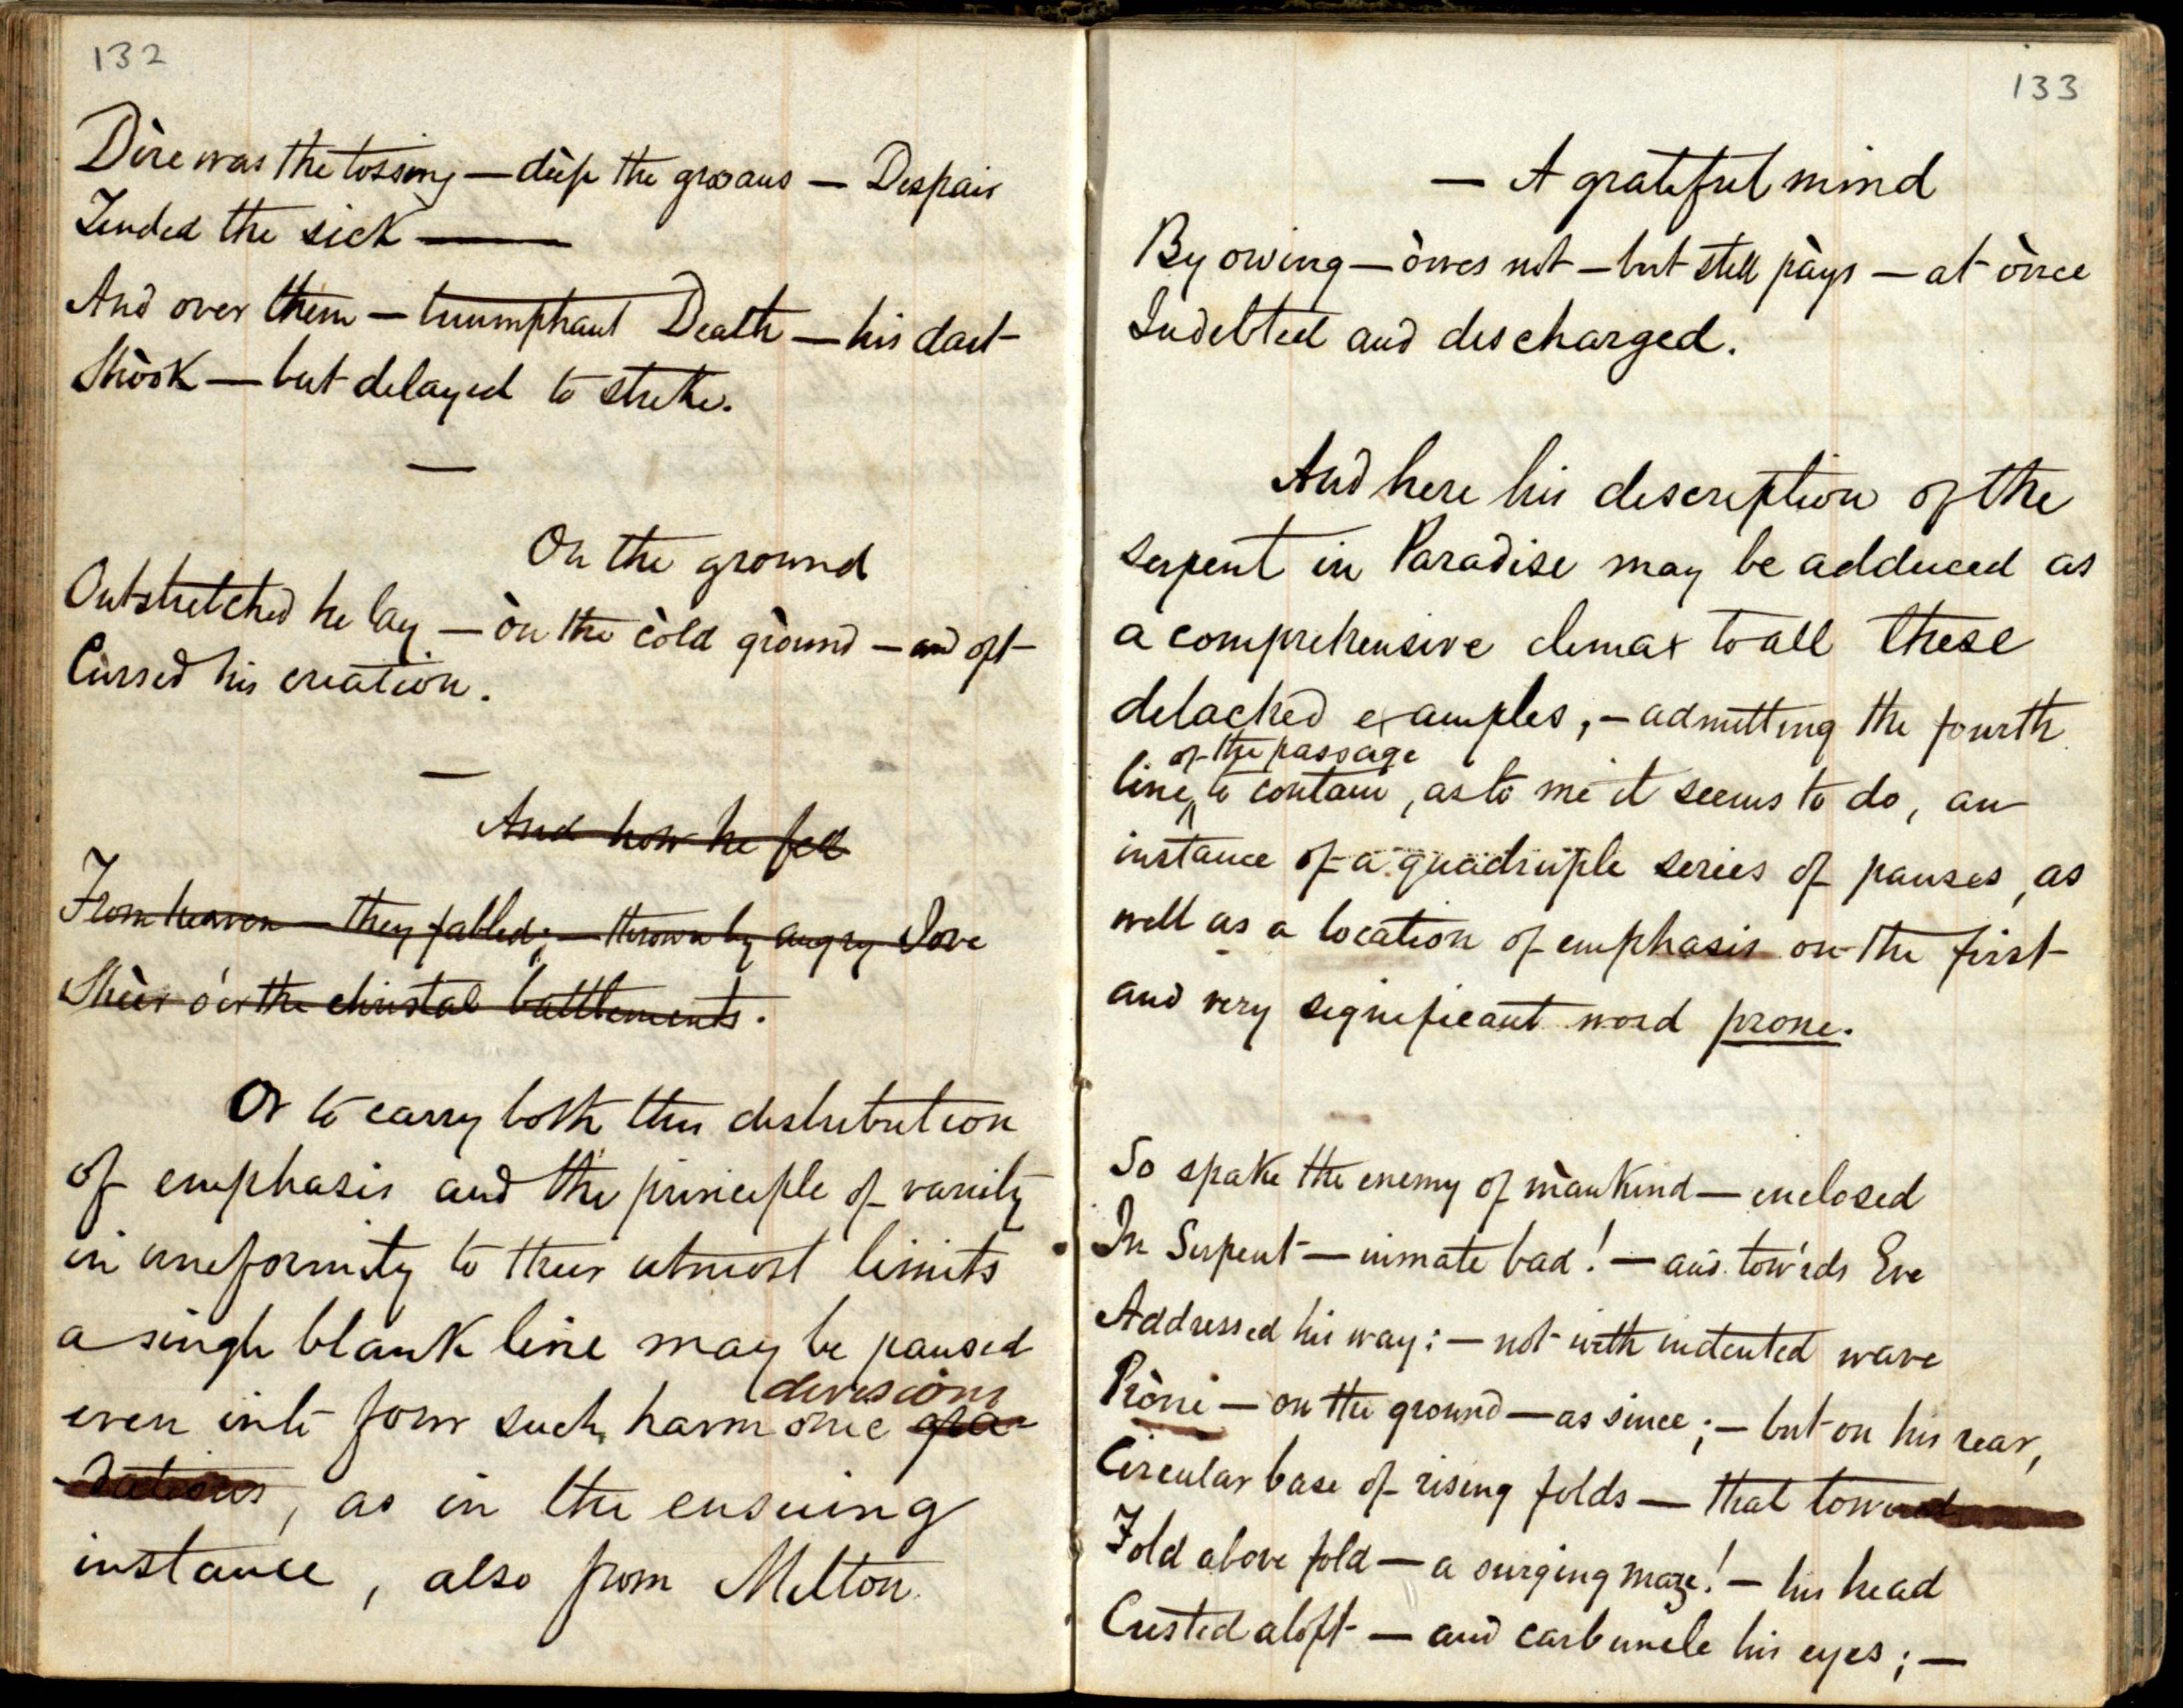 132
Dìre was the tossing — dèep the groans — Despair
Tended the sick ——
And over them — triumphant Death — his dart
Shòok — but delayed to strike.
—
On the ground
Outstretched he lay — òn the còld gròund — and oft
Cursed his creation.
—
And how he fell
From heaven — they fabled; — thrown by angry Jove
Shèer o'er the christal battlements.
Or to carry both this distribution
of emphasis and the principle of variety
in uniformity to their utmost limits
a single blank line may be paused
divisions
even into four such harmonic gra-
dations, as in the ensuing
instance, also from Milton.
133
— A grateful mind
By owing — òwes not — but still pàys — at ònce
Indebted and discharged.
And here his description of the
serpent in Paradise may be adduced as
a comprehensive climax to all these
detached examples, — admitting the fourth
of the passage
line ^ to contain, as to me it seems to do, an
instance of a quadruple series of pauses, as
well as a location of emphasis on the first
and very significant word prone.
So spake the enemy of mànkind — enclosed
In Serpent — inmate bad! — and tow'rds Eve
Addressed his way: — not with indented wave
Pròne — on the ground — as since; — but on his rear,
Circular base of rising folds — that towered
Fold above fold — a surging maze! — his head
Crested aloft — and carbuncle his eyes; —